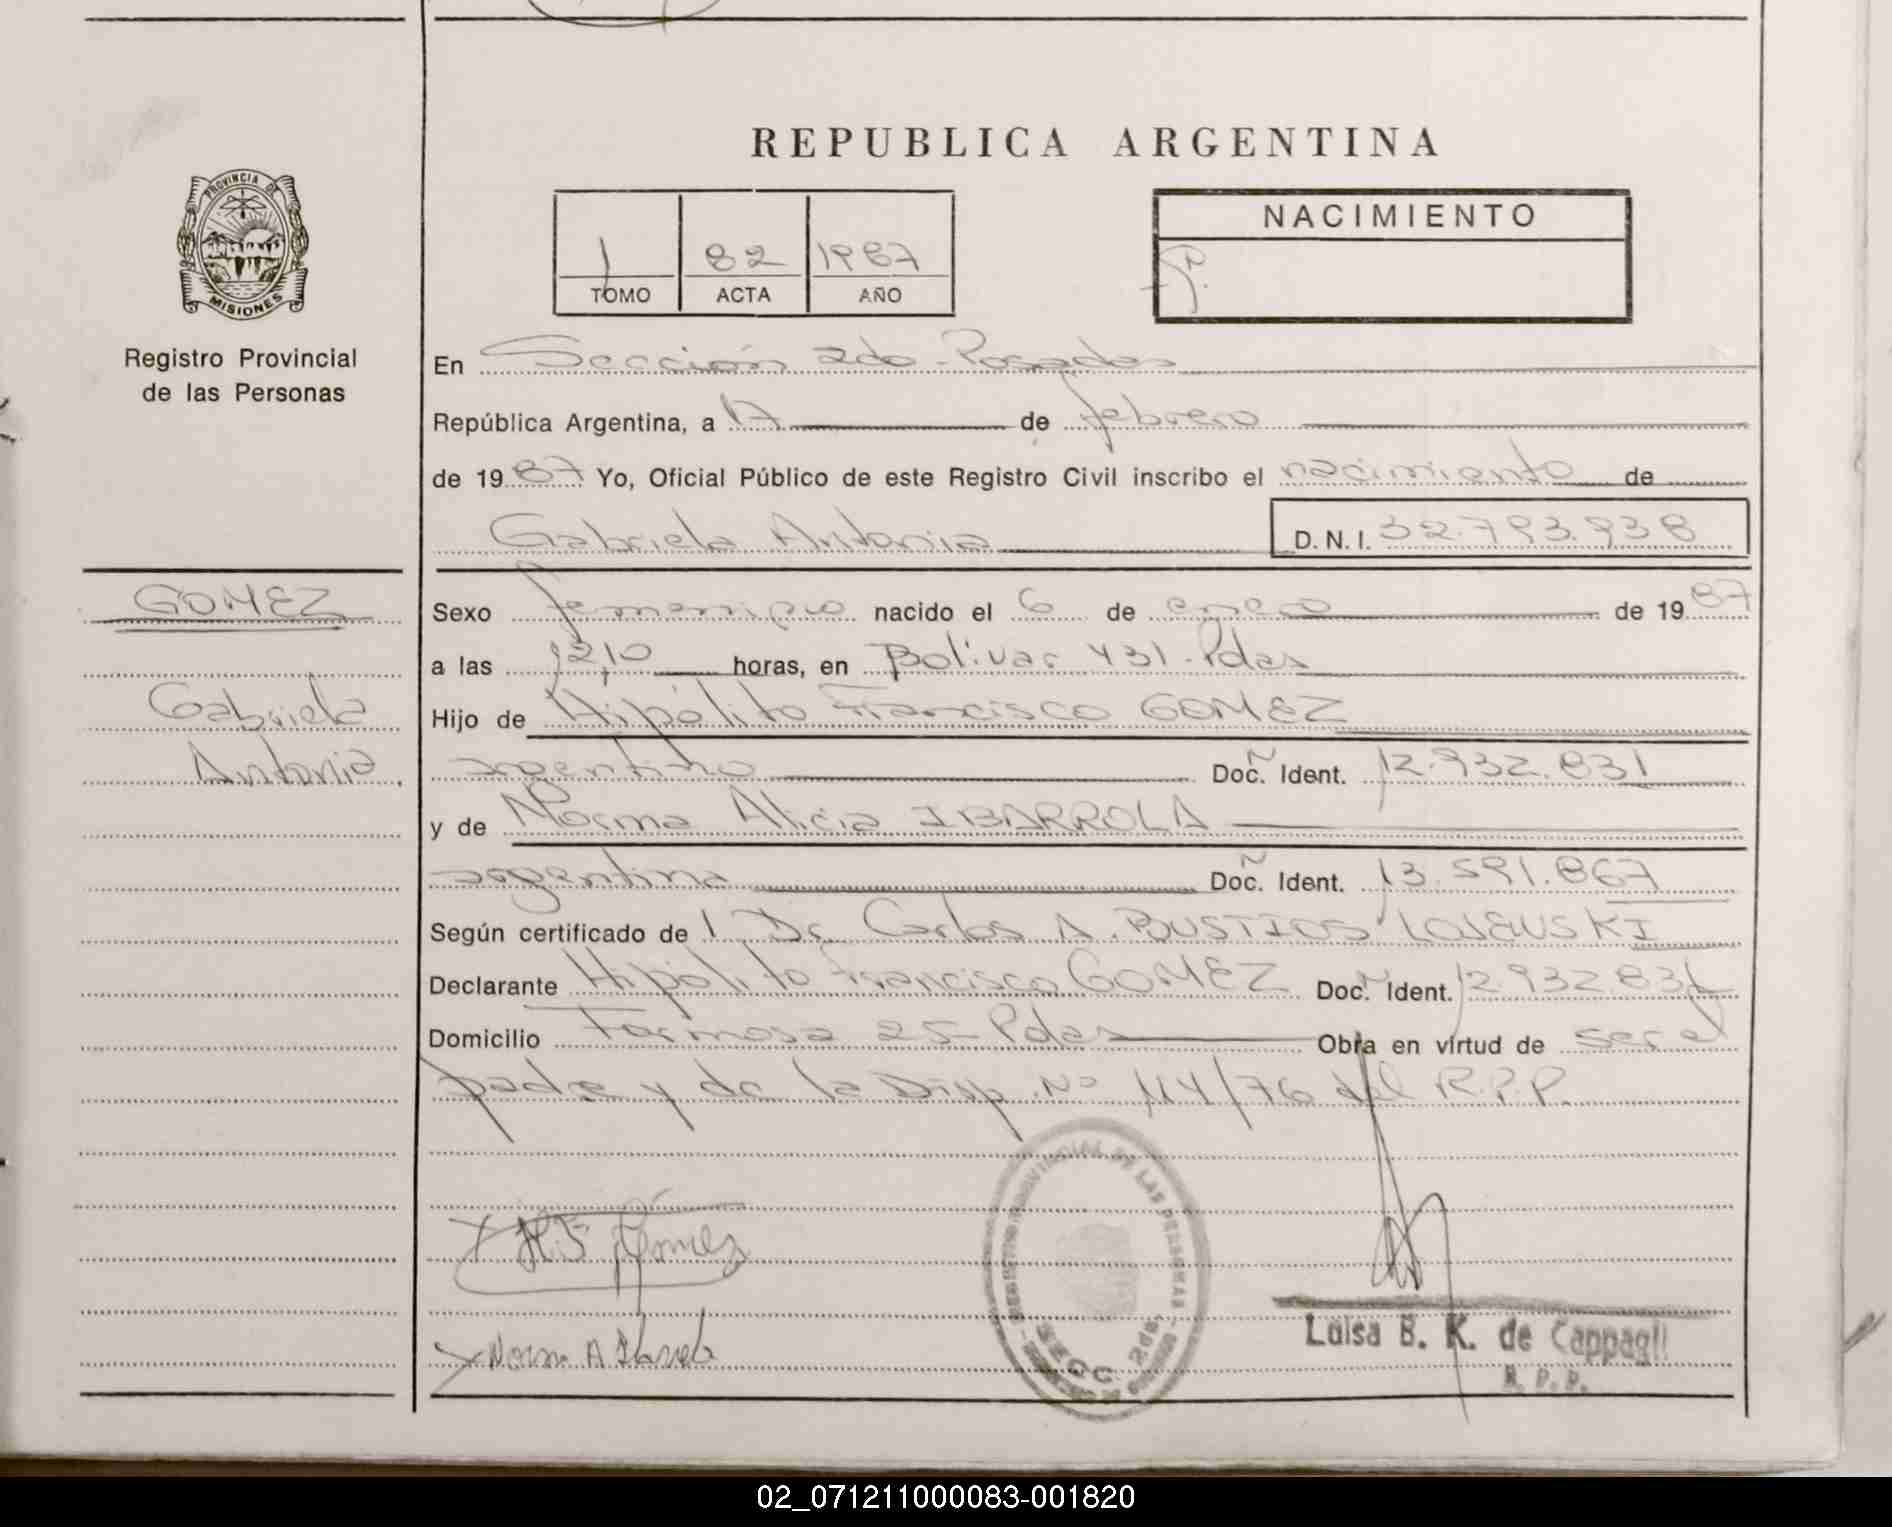 REPUBLICA ARGENTINA
PROVINCIA DE
MISIONES
Registro Provincial
de las Personas
1 82 1987
TOMO ACTA AÑO
NACIMIENTO
En Sección 2da - Posadas
República Argentina, a 17 de febrero
de 1987 Yo, Oficial Público de este Registro Civil inscribo el nacimiento de
Gabriela Antonia D.N.I. 32.793.938
GOMEZ
Gabriela
Antonia
Sexo femenino nacido el 6 de enero de 1987
a las 12,10 horas, en Bolivar 431 - Pdas
Hijo de Hipólito Francisco GOMEZ
argentino Doc. Ident. 12.932.831
y de Norma Alicia IBARROLA
argentina Doc. Ident. 13.591.867
Según certificado de l Dr. Carlos A. BUSTIOS
Declarante Hipólito Francisco GOMEZ Doc. Ident. 12.932.831
Domicilio Formosa 25 - Pdas Obra en virtud de ser el
padre y de la Disp. Nº 114/76 del R.P.P.
H F Gómez
Norma A Ibarrola
REGISTRO PROVINCIAL DE LAS PERSONAS
SECC 2da.
Luisa B. K. de Cappagli
R. P. P.
02_071211000083-001820